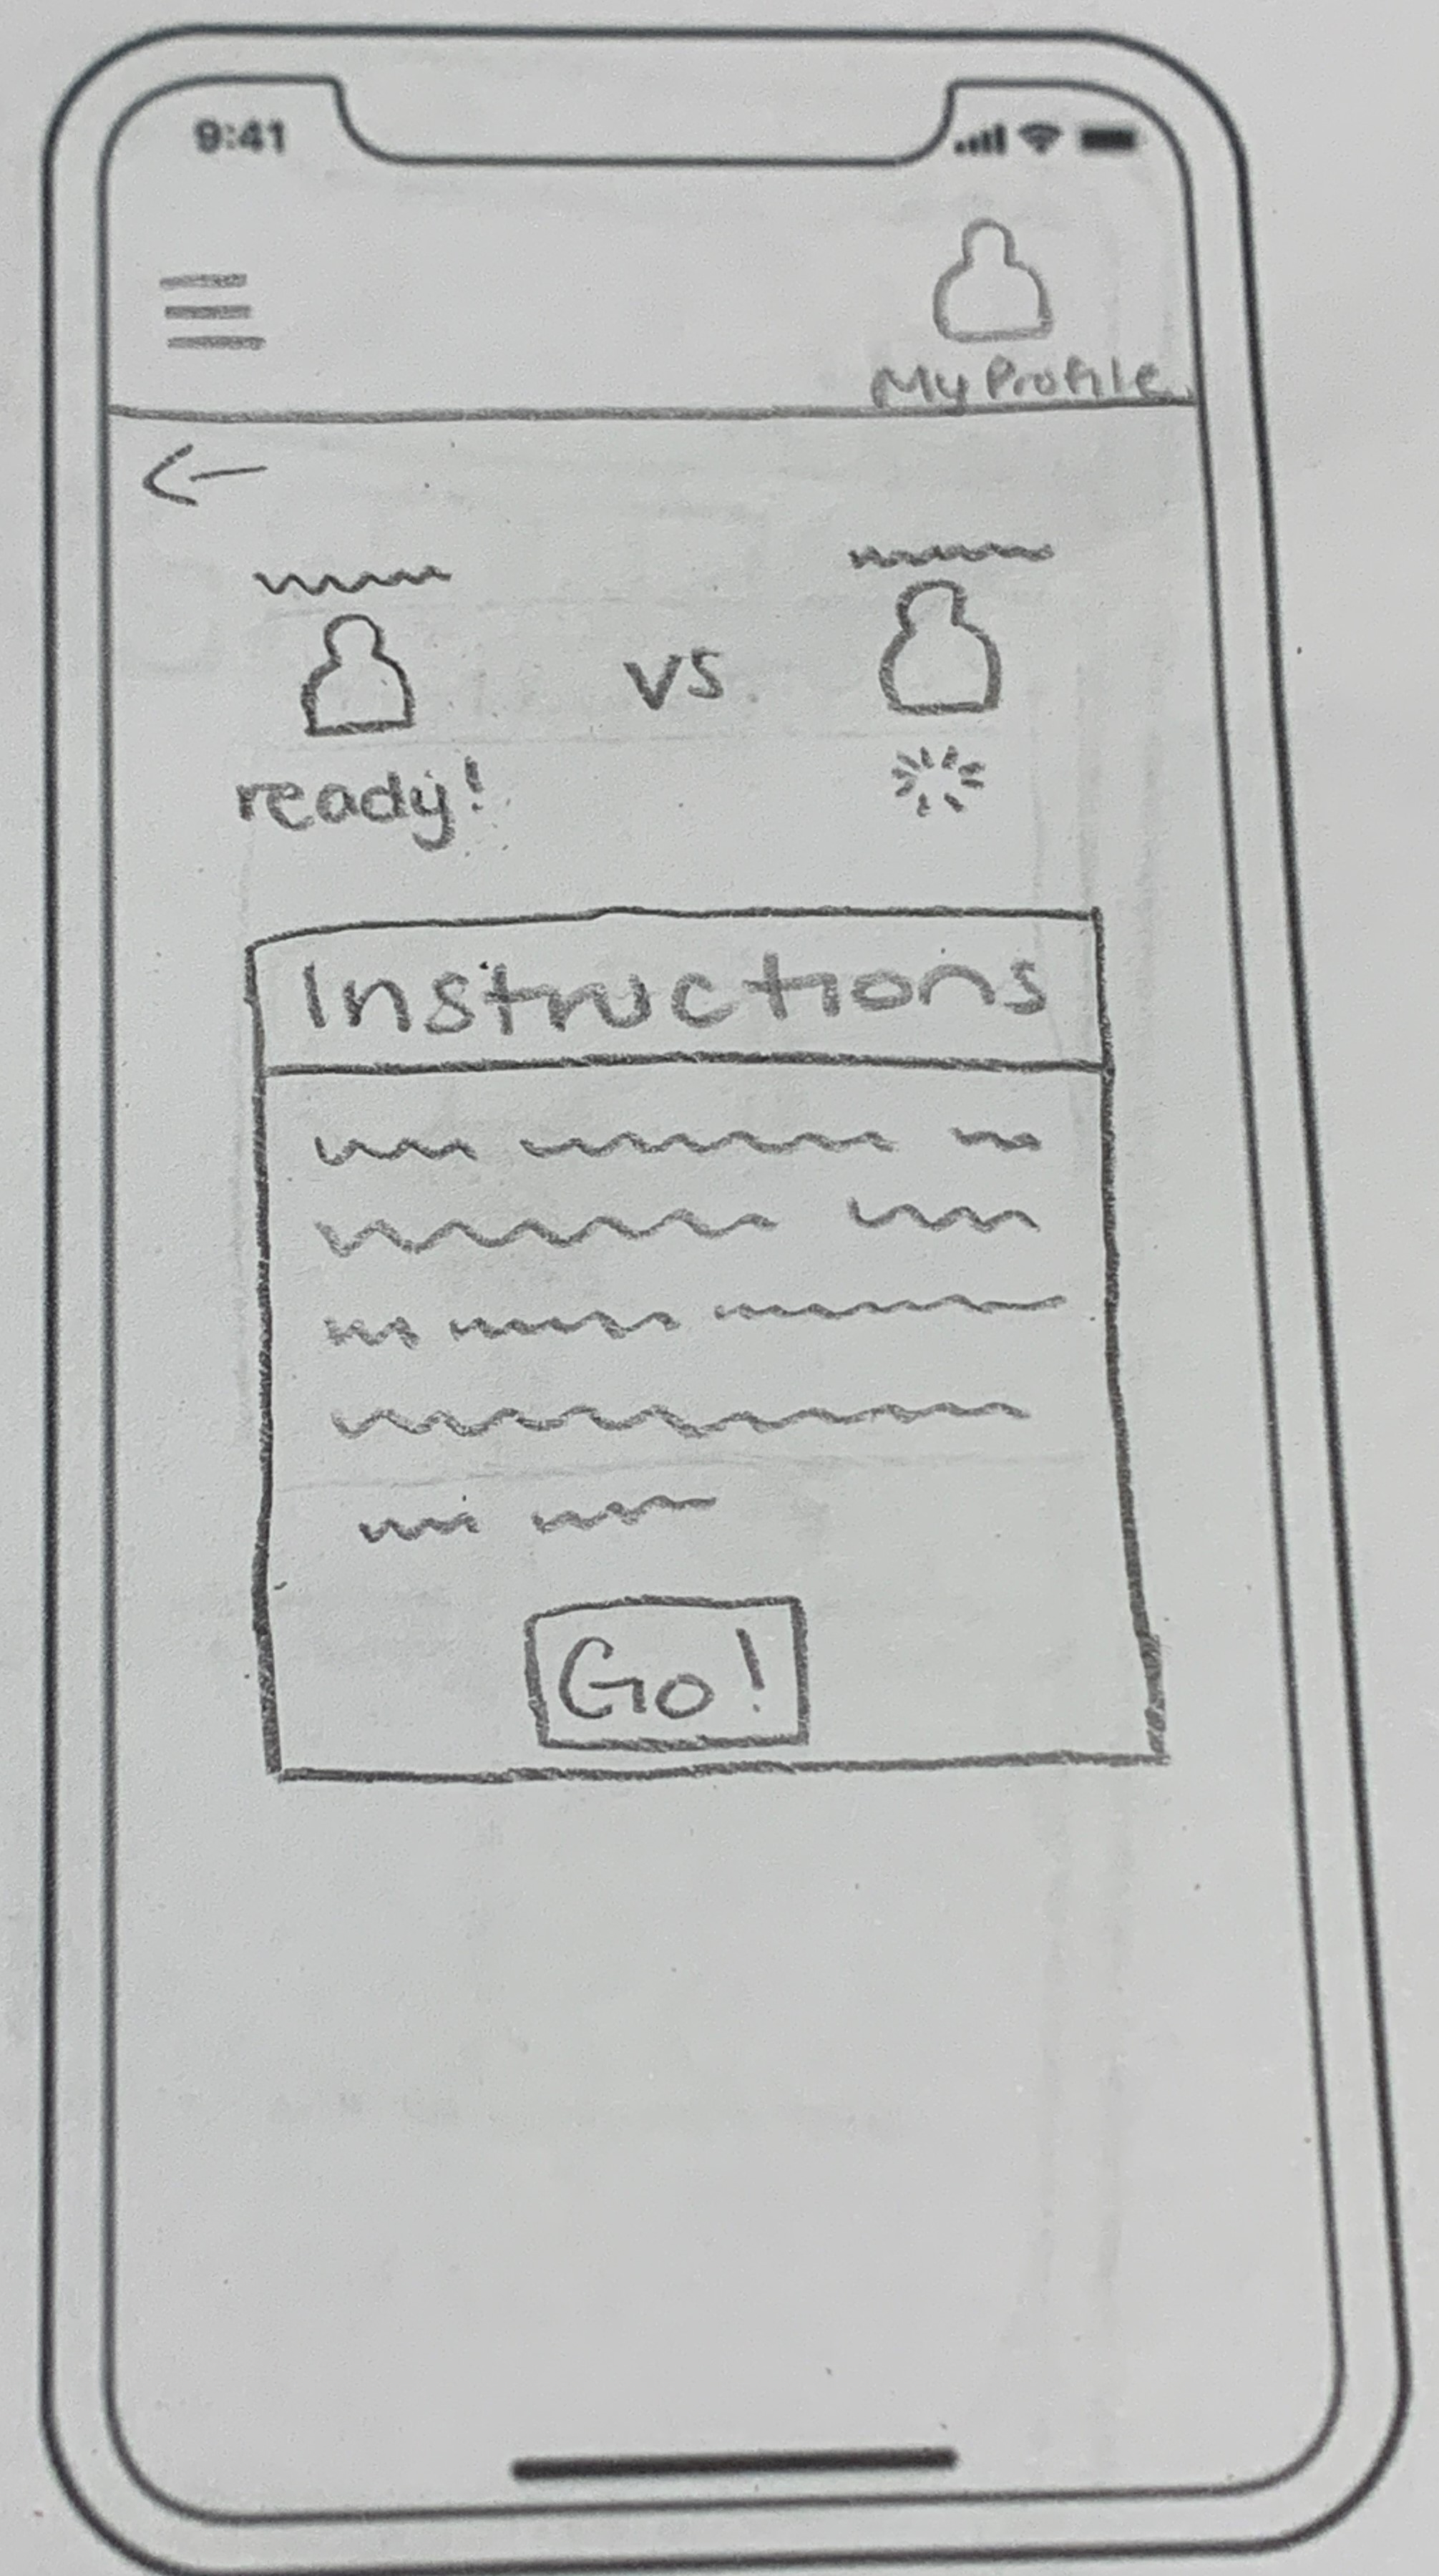 9:41
My Profile
vs
ready!
Instructions
Go!